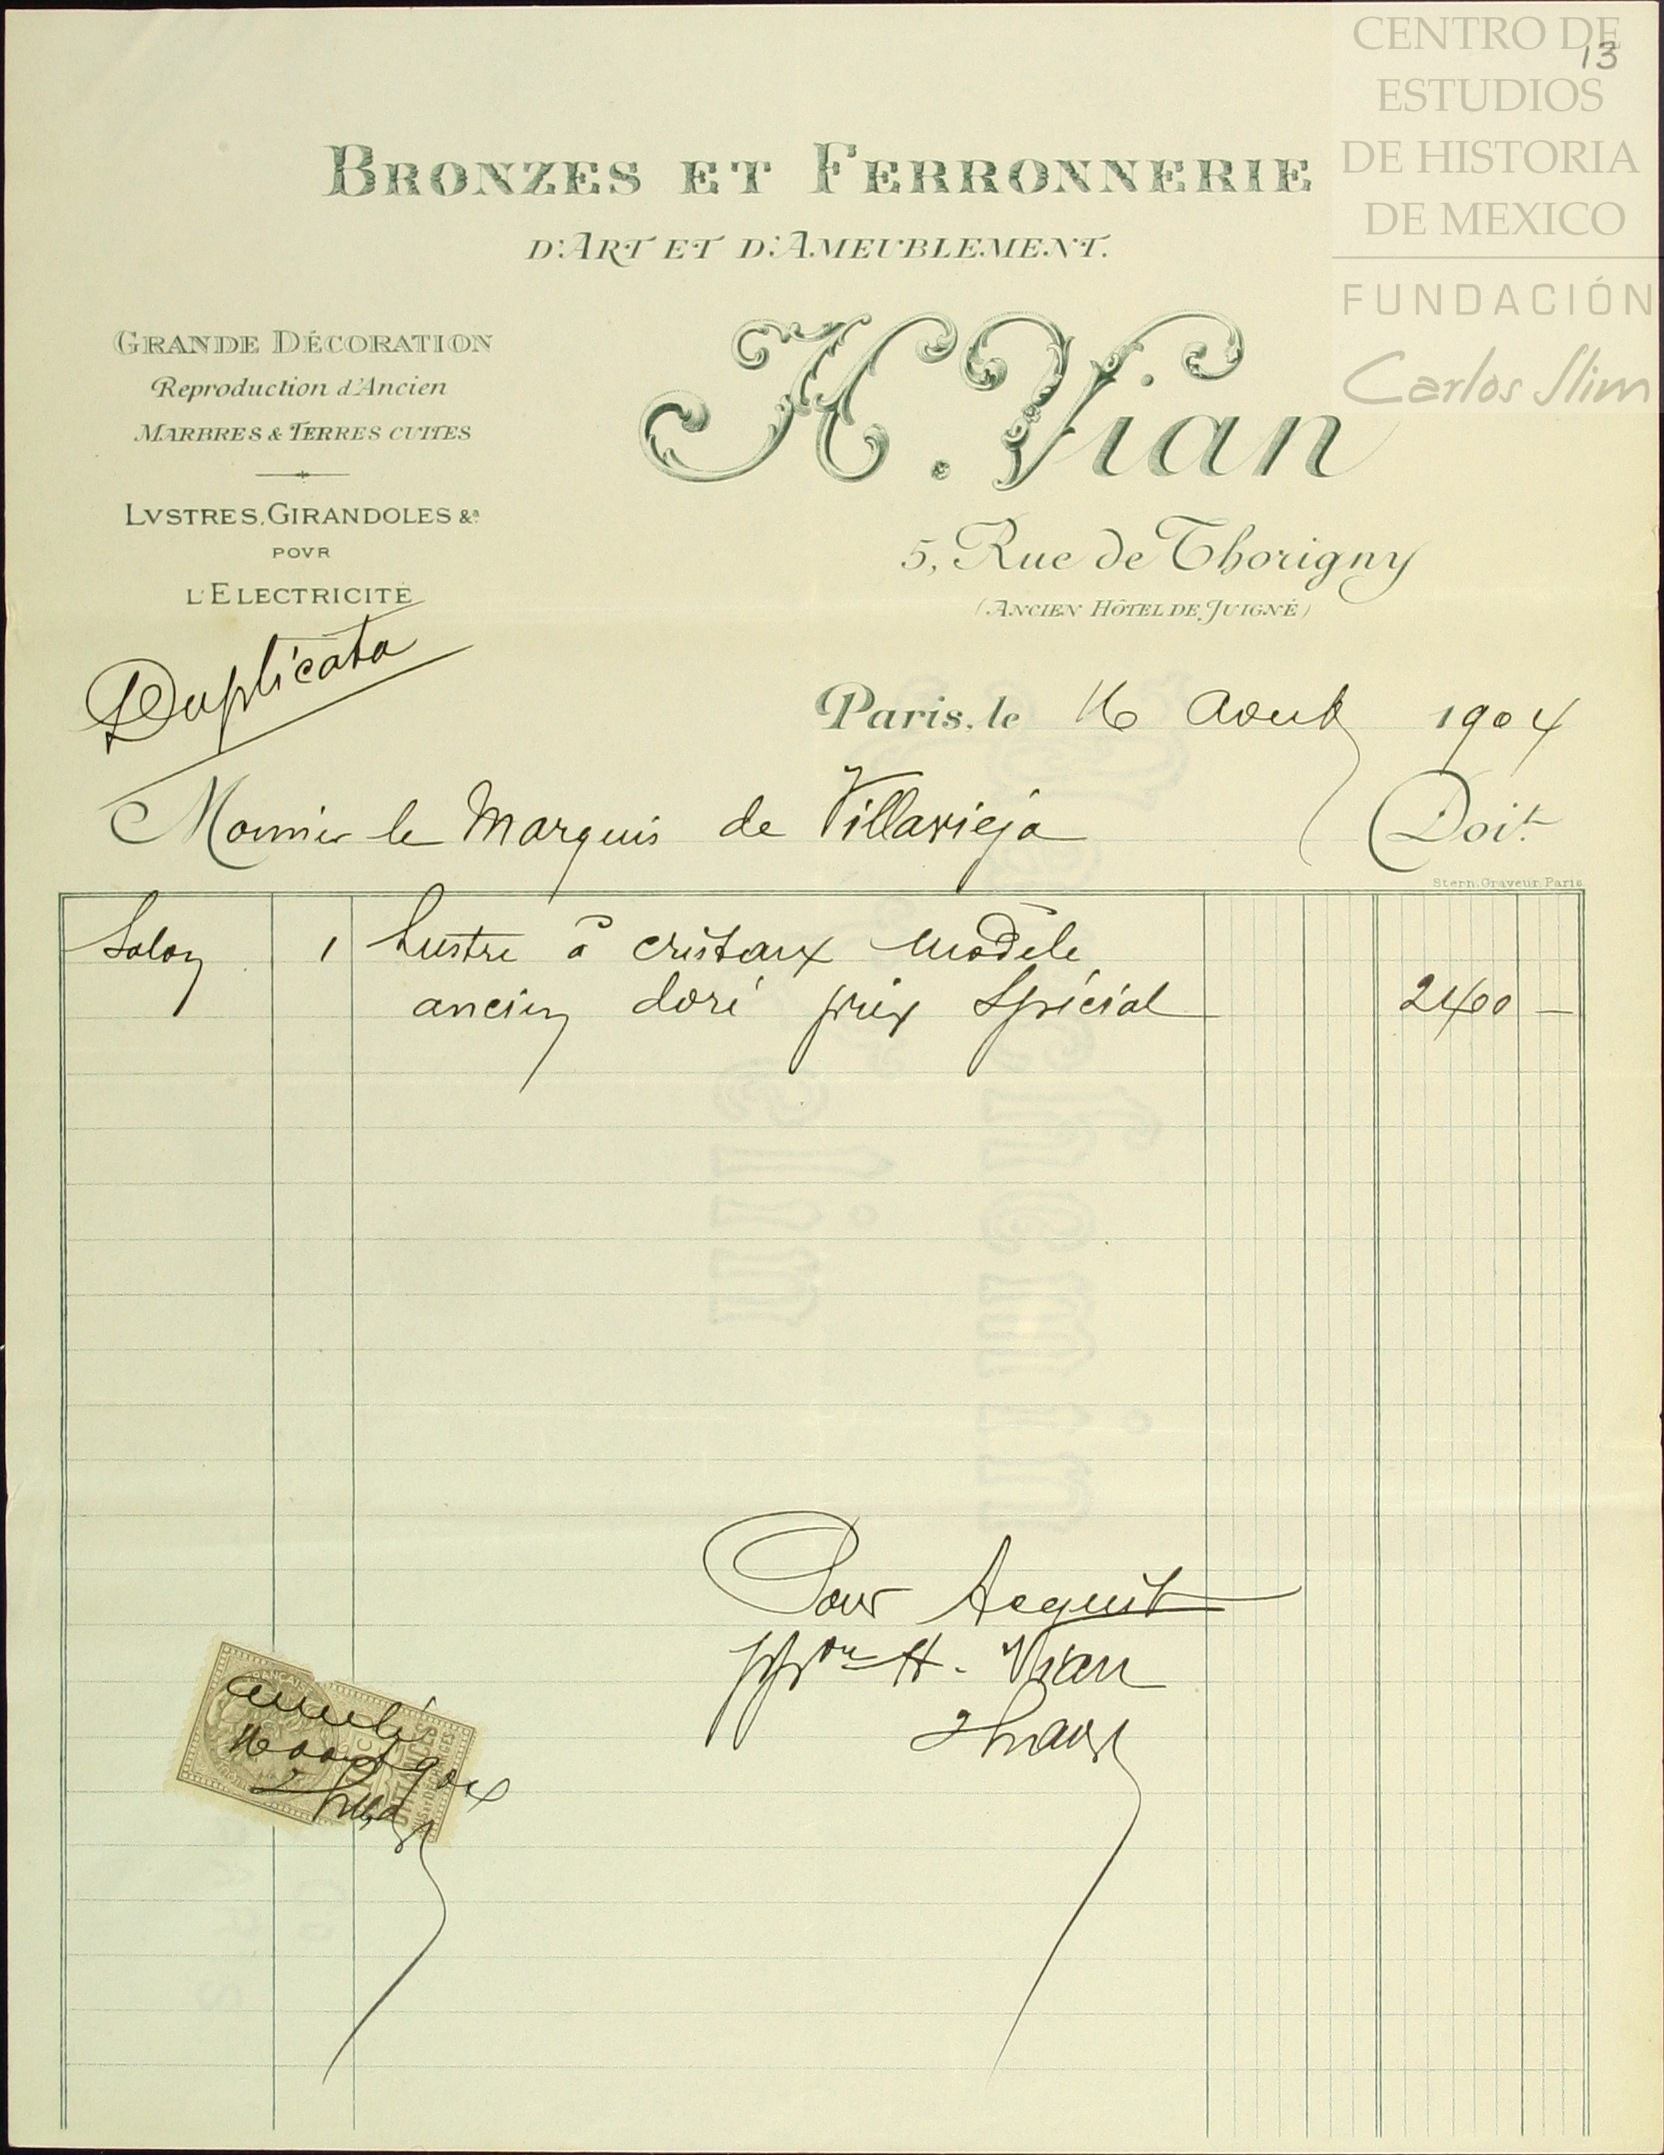 CENTRO DE
ESTUDIOS
DE HISTORIA
DE MEXICO
FUNDACIÓN
Carlos Slim
13
BRONZES ET FERRONNERIE
D'ART ET D'AMEUBLEMENT.
GRANDE DÉCORATION
Reproduction d'Ancien
MARBRES & TERRES CUITES
LVSTRES, GIRANDOLES &a
POVR
L'ELECTRICITÉ
H. Vian
5, Rue de Thorigny
(ANCIEN HÔTEL DE JUIGNÉ)
Duplicata
Paris, le 16 Aout 1904
Monsieur le Marquis de Villavieja Doit
Stern, Graveur, Paris
Salon 1 lustre à cristaux modèle
ancien doré prix spécial 2400 —
Pour Acquit
H. Vian
FRANÇAISE
QUITTANCES
REÇUS ET DÉCHARGES
annulé
16 aout 904